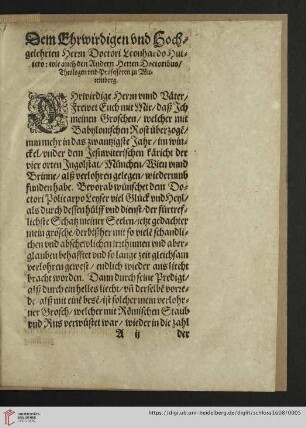 Dem Ehrwirdigen vnd Hoch-
gelehrten Herrn Doctori Leonhardo Hut-
tero: wie auch den Andern Herren Doctoribus/
Theologen vnd Professoren zu Wit-
temberg.
EHrwirdige Herrn vnnd Väter/
Frewet Euch mit Mir/ daß Ich
meinen Groschen/ welcher mit
Babylonischen Rost vberzogē/
nun mehr in das zwantzigste Jahr/ im win-
ckel/ vnder den Jesuwiterischen käricht der
vier orten Ingolstat/ München/ Wien vnnd
Brünne/ alß verlohren gelegen/ wiederumb
funden habe. Bevorab wünschet dem Do-
ctori Policarpo Leyser viel Glück vnd Heyl/
als durch dessen hülff vnd dienst/ der fürtref-
lichste Schatz meiner Seelen/ jetz gedachter
mein grosche/ der bißher mit so viele schandli-
chen vnd abschewlichen irthumen vnd aber-
glauben behafftet vnd so lange zeit gleichsam
verlohren gewest/ endlich wieder ans liecht
bracht worden. Dann durch seine Predigt/
alß durch ein helles liecht/ vñ derselbē vorre-
de/ alß mit einē besē/ ist solcher mein verlohr-
ner Grosch/ welcher mit Römischen Staub
vnd Rus verwüstet war/ wieder in die zahl
A ij der
https://digi.ub.uni-heidelberg.de/diglit/schloss1608/0005